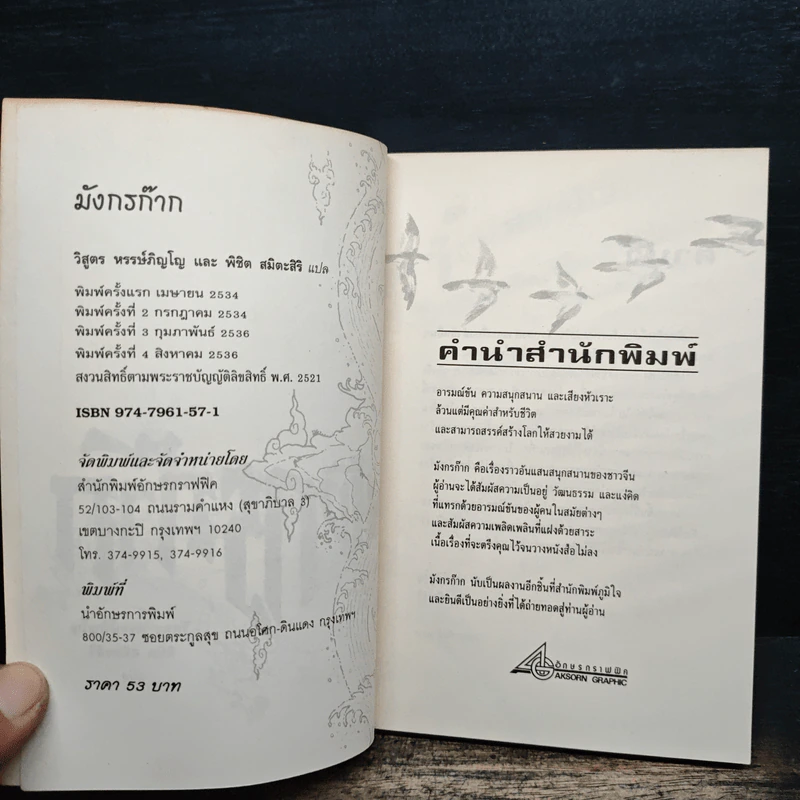 มังกรก๊าก
วิสูตร หรรษ์ภิญโญ และ พิชิต สมิตะสิริ แปล
พิมพ์ครั้งแรก เมษายน 2534
พิมพ์ครั้งที่ 2 กรกฎาคม 2534
พิมพ์ครั้งที่ 3 กุมภาพันธ์ 2536
พิมพ์ครั้งที่ 4 สิงหาคม 2536
สงวนสิทธิ์ตามพระราชบัญญัติลิขสิทธิ์ พ.ศ. 2521
ISBN 974-7961-57-1
จัดพิมพ์และจัดจำหน่ายโดย
สำนักพิมพ์อักษรกราฟฟิค
52/103-104 ถนนรามคำแหง (สุขาภิบาล 3)
เขตบางกะปิ กรุงเทพฯ 10240
โทร. 374-9915, 374-9916
พิมพ์ที่
นำอักษรการพิมพ์
800/35-37 ซอยตระกูลสุข ถนนอโศก-ดินแดง กรุงเทพฯ
ราคา 53 บาท
คำนำสำนักพิมพ์
อารมณ์ขัน ความสนุกสนาน และเสียงหัวเราะ
ล้วนแต่มีคุณค่าสำหรับชีวิต
และสามารถสรรค์สร้างโลกให้สวยงามได้
มังกรก๊าก คือเรื่องราวอันแสนสนุกสนานของชาวจีน
ผู้อ่านจะได้สัมผัสความเป็นอยู่ วัฒนธรรม และแง่คิด
ที่แทรกด้วยอารมณ์ขันของผู้คนในสมัยต่างๆ
และสัมผัสความเพลิดเพลินที่แฝงด้วยสาระ
เนื้อเรื่องที่จะตรึงคุณไว้จนวางหนังสือไม่ลง
มังกรก๊าก นับเป็นผลงานอีกชิ้นที่สำนักพิมพ์ภูมิใจ
และยินดีเป็นอย่างยิ่งที่ได้ถ่ายทอดสู่ท่านผู้อ่าน
อักษรกราฟฟิค
AKSORN GRAPHIC